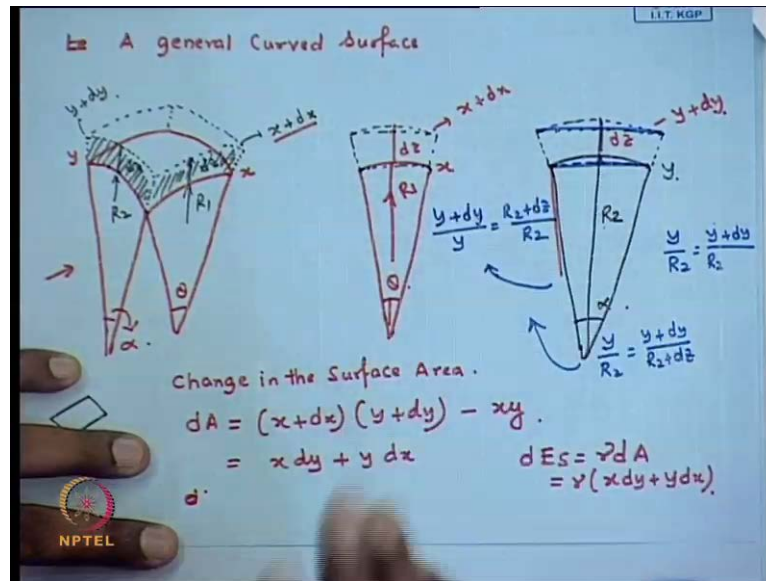 I.I.T. KGP
A general Curved Surface
y+dy.
x+dx
y
x
R2
R1
θ
α.
x+dx
dz
x
R1
θ
y+dy.
dz
y.
R2
α
(y+dy)/y = (R2+dz)/R2
y/R2 = (y+dy)/R2
y/R2 = (y+dy)/(R2+dz)
Change in the Surface Area.
dA = (x+dx) (y+dy) - xy.
= x dy + y dx
dEs = γdA
= γ(xdy+ydx).
d
NPTEL